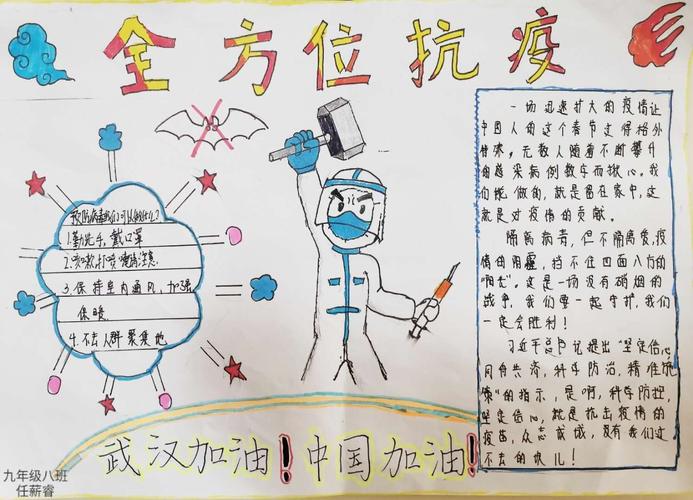 全方位抗疫
预防病毒我们可以做什么?
1.勤洗手,戴口罩
2.咳嗽,打喷嚏请注意.
3.保持室内通风,加强
保暖
4.不去人群聚集地
一场迅速扩大的疫情让
中国人的这个春节变得格外
特殊。无数人随着不断攀升
的感染病例数字而揪心。我
们能做的,就是留在家中,这
就是对疫情的贡献。
隔离病毒,但不隔离爱,疫
情的阴霾,挡不住四面八方的
"阳光"。这是一场没有硝烟的
战争,我们要一起守护,我们
一定会胜利!
习近平总书记提出"坚定信心
同舟共济,科学防治,精准施
策"的指示,是啊,科学防控,
坚定信心,就是抗击疫情的
疫苗,众志成城,没有我们过
不去的坎儿!
武汉加油!中国加油!
九年级八班
任薪睿